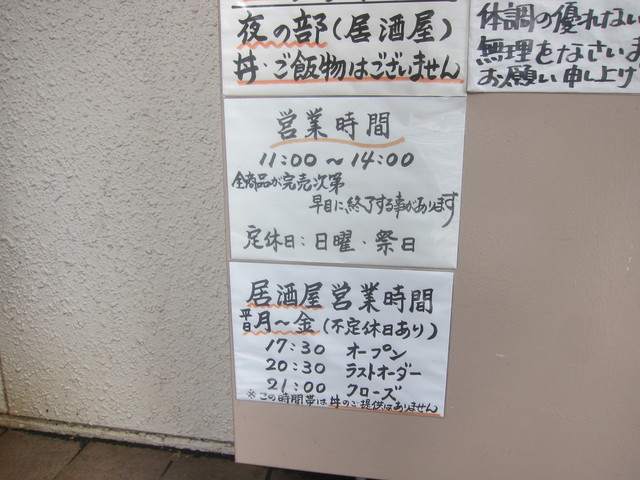 夜の部(居酒屋)
丼・ご飯物はございません
体調の優れない
無理をなさいま
お願い申し上げ
営業時間
11:00~14:00
全商品が完売次第
早目に終了する事があります
定休日:日曜・祭日
居酒屋営業時間
平日月~金(不定休日あり)
17:30 オープン
20:30 ラストオーダー
21:00 クローズ
※この時間帯は丼のご提供はありません